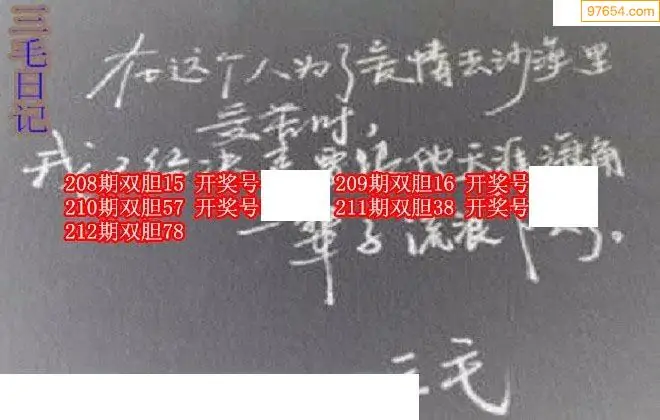 三毛日记
97654.com
在这个人为了爱情去沙漠里
受苦时，
我已经决定要跟他天涯海角
208期双胆15 开奖号
209期双胆16 开奖号
210期双胆57 开奖号
211期双胆38 开奖号
212期双胆78
一辈子流浪下去。
三毛